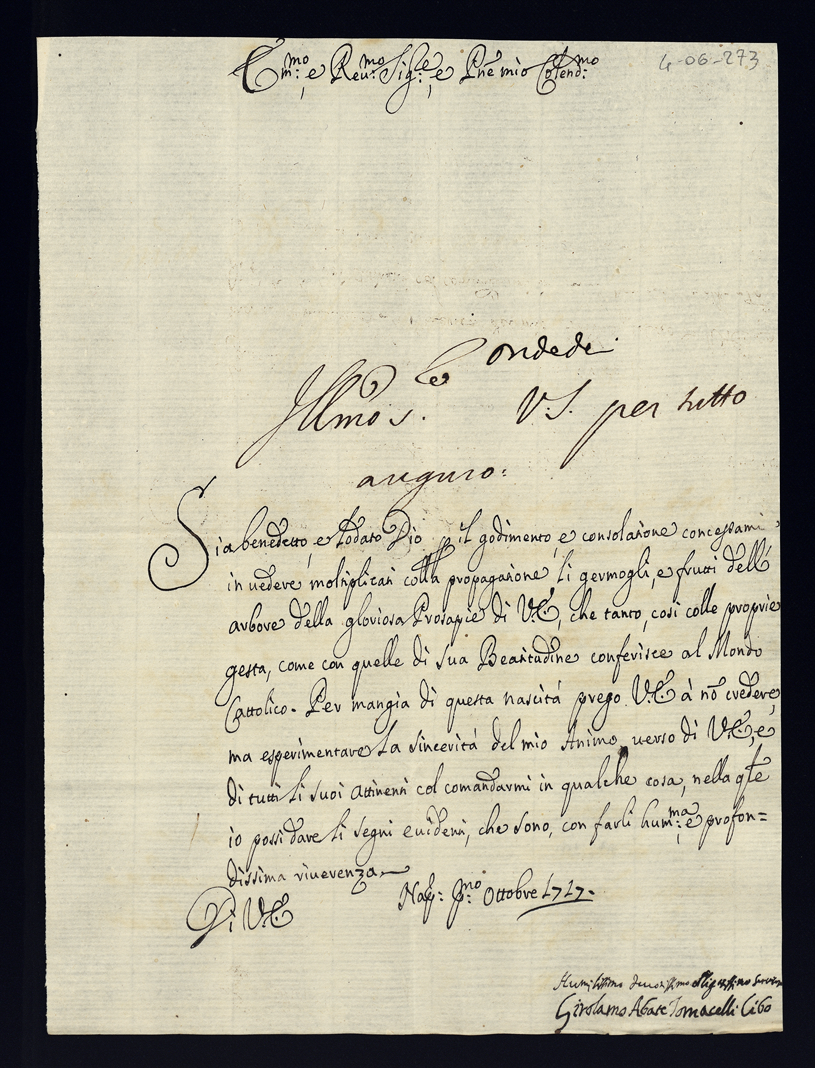 Em:mo e Reu:mo Sig:re, e Pñe mio Colend:mo
4-06-273
Ondedei
Ce
Illmo s. V.S. per tutto
auguro:
Sia benedetto, e lodato Dio p il godimento, e consolatione concessami
in uedere moltiplicati colla propagatione li germogli, e frutti dell'
arbore della gloriosa Prosapie di V.E., che tanto, così colle proprie
gesta, come con quelle di sua Beatitudine conferisce al Mondo
Cattolico. Per mangia di questa nascità prego V.E. à nõ credere,
ma esperimentare la sincerità del mio Animo verso di V.E., e
di tutti li suoi Attinenti col comandarmi in qualche cosa, nella qle
io possi dare li segni euidenti, che sono, con farli hum:ma e profon=
dissima riuerenza
Di V.E. Nap: p:mo Ottobre 1717.
Humilissimo deuotissimo Obligatissimo
Girolamo Abate Tomacelli Cibo